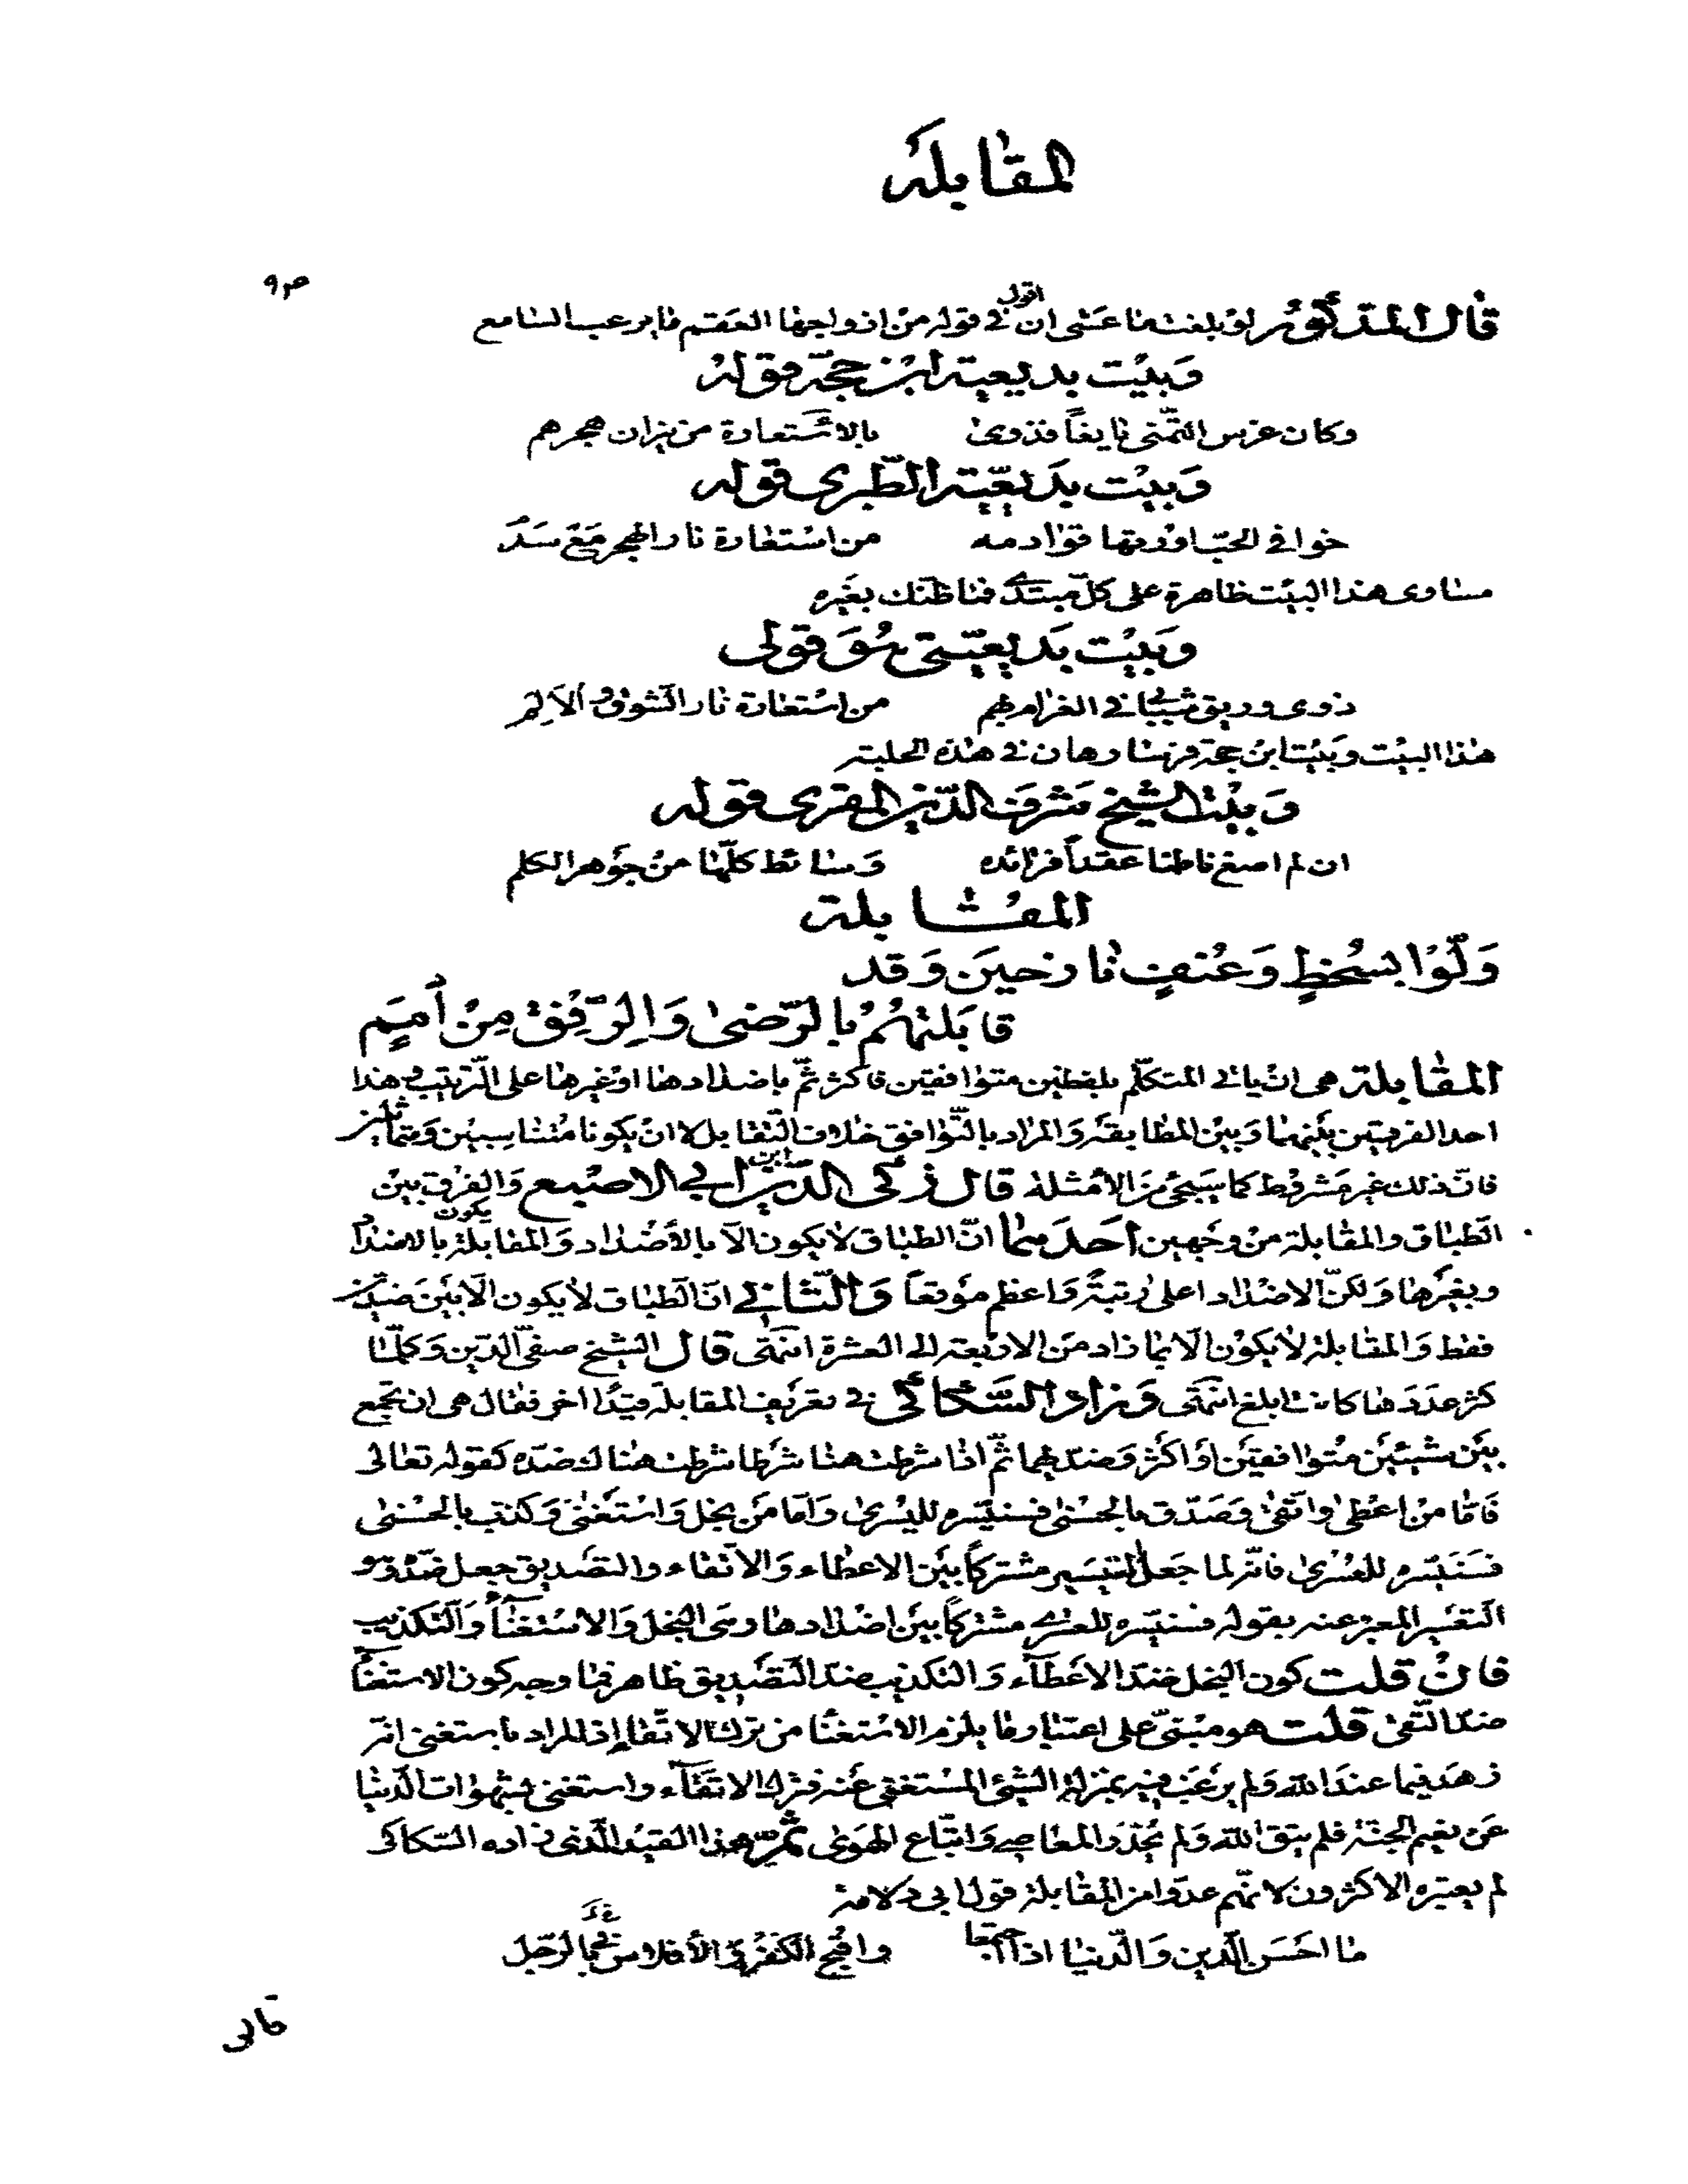 المقابلة
ص٩
قال المذكور لو بلغت ما عسى ان اقول في قوله من ازواجها العقم ما يرعب السامع
وبيت بديعية ابن حجة قوله
وكان غرس التمني يانعًا فذوى بالاستعارة من نيران هجرهم
وبيت بديعية الطبري قوله
خوافي الحب اورتها قوادمه من استعارة نار الهجر مع سدم
مساوى هذا البيت ظاهرة على كل مبتدئ فما ظنك بغيره
وبيت بديعيتي هُوَ قولى
ذوى وريق شبابي في الغرام بهم من استعارة نار الشوق والالم
هذا البيت وبيت ابن حجة فرسا رهان في هذه الحلبة
وبيت الشيخ شرف الدين المقري قوله
ان لم اصغ ناظما عقداً فرائده وسائط كلها من جوهر الكلم
المقابلة
وَلَّوْا بسُخطٍ وَعُنفٍ نازحينَ وَقد
قابَلتهُمُ بالرّضىٰ وَالرِّفِقِ مِنْ أَمَمٍ
المقابلة هى ان يأتي المتكلم بلفظين متوافقين فاكثر ثمّ باضدادها او غيرها على الترتيب وهذا
احد الفرقين بينهما وَبين المطابقة وَالمراد بالتّوافق خلاف التّقابل لا ان يكونا متناسبين ومتماثلين
فان ذلك غير مشروط كما سيجئ من الأمثلة قال زكى الدّين ابن ابي الاصبع وَالفرق بين
الطّباق والمقابلة من وجهين احدهما انّ الطباق لا يكون الاّ بالأضداد وَالمقابلة يكون بالاضداد
وبغيرها وَلكنّ الاضداد اعلى رتبةً وَاعظم موقعاً وَالثاني انّ الطباق لا يكون الّا بين ضدّين
فقط وَالمقابلة لا يكون الّا بما زاد من الاربعة الى العشرة انتهى قال الشيخ صفيّ الدّين وَكلّما
كثر عددها كانت ابلغ انتهى وزاد السّكاكى في تعريف المقابلة قيدًا اخر فقال هى ان تجمع
بين شيئين متوافقين او اكثر وَضدّيهما ثمّ اذا شرطت هنا شرطا شرطت هناك ضدّه كقوله تعالى
فَامّا من اعْطى واتّقى وَصَدّق بالحسنى فسنيسّره لليسرى وَامّا من بخل وَاستَغنى وَكذّب بالحسنى
فسَنيسّره للعسرى فانّه لما جعل التيسير مشتركًا بين الاعطاء وَالاتّقاء والتصديق جعل ضدّه وهو
التعسير المعبّر عنه بقوله فسنيسّره للعسرى مشتركًا بين اضدادها وهى البخل وَالاستغناء وَالتكذيب
فان قلت كون البخل ضدّ الاعطآء وَالتكذيب ضدّ التّصديق ظاهر فما وجه كون الاستغناء
ضدّ التّقى قلت هو مبنىّ على اعتبار ما يلزم الاستغنا من ترك الاتّقا إذ المراد باستغنى انّه
زهد فيما عندَ الله وَلم يرغب فيه بمنزلة الشيئ المستغنى عنه فترك الاتقآء واستغنى بشهوات الدّنيا
عن نعيم الجنّة فلم يتق الله وَلم يحذر المعاصي وَاتّباع الهوى ثم هذا القيد الّذى زاده السّكاكى
لم يعتبره الاكثرون لانّهم عدّوا من المقابلة قول ابى دلامة
ما احسَن الدين وَالدّنيا اذا اجتمعا واقبح الكفر وَالأفلاس بالرّجل